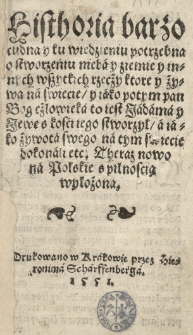 Histhoria barzo
cudna y ku wiedzieniu potrzebna
o stworzeniu nieba y ziemie y in-
nych wszytkich rzeczy ktore y ży-
wą na świecie/ y iáko potym pan
Bog człowieka to iest Jádamá y
Jewe s kości iego stworzył/ á iá-
ko żywotá swego ná tym świecie
dokonáli etc, Theraz nowo
ná Polskie s pilnością
wyłożona,
Drukowano w Krákowie przez Hie-
ronima Scharffenbergá.
1551.